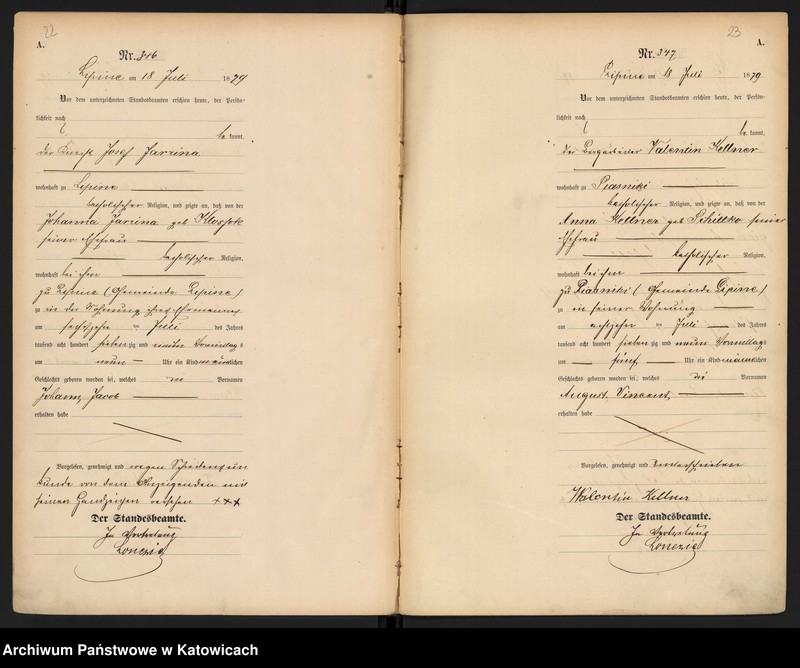 22
A.
Nr. 346
Lipine am 18 Juli 1879
Vor dem unterzeichneten Standesbeamten erschien heute, der Persön-
lichkeit nach
be kannt,
der Josef Jarzina
wohnhaft zu Lipine
katholischer Religion, und zeigte an, daß von der
Johanna Jarzina geb
seiner Ehefrau
katholischer Religion,
wohnhaft bei ihm
zu Lipine (Gemeinde Lipine)
in der Wohnung ihres Ehemannes
am sechszehn ten Juli des Jahres
tausend acht hundert sieben zig und neun Vormittags
um neun Uhr ein Kind männlichen
Geschlechts geboren worden sei, welches Vornamen
Johann, Jacob
erhalten habe
Vorgelesen, genehmigt und wegen Schreibensun
kunde von dem Anzeigenden mit
seinem Handzeichen versehen +++
Der Standesbeamte.
In Vertretung
23
A.
Nr. 347
Lipine am 18 Juli 1879
Vor dem unterzeichneten Standesbeamten erschien heute, der Persön-
lichkeit nach
be kannt,
der Bergarbeiter Valentin Kellner
wohnhaft zu Piasniki
katholischer Religion, und zeigte an, daß von der
Anna Kellner geb seiner
Ehefrau
katholischer Religion,
wohnhaft bei ihm
zu Piasniki (Gemeinde Lipine)
in seiner Wohnung
am achtzehn ten Juli des Jahres
tausend acht hundert sieben zig und neun Vormittags
um fünf Uhr ein Kind männlichen
Geschlechts geboren worden sei, welches die Vornamen
August, Vincent,
erhalten habe
Vorgelesen, genehmigt und unterschrieben
Walentin Kellner
Der Standesbeamte.
In Vertretung
Archiwum Państwowe w Katowicach